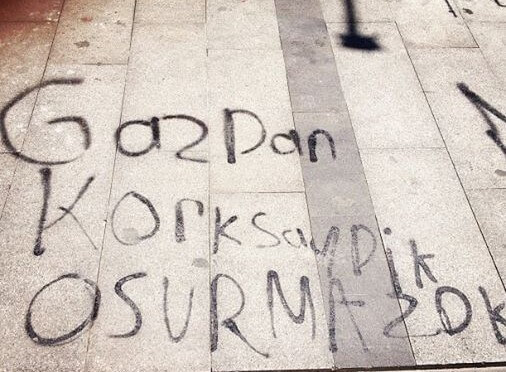 GazDan
KorksayDik
OSURMAZDK